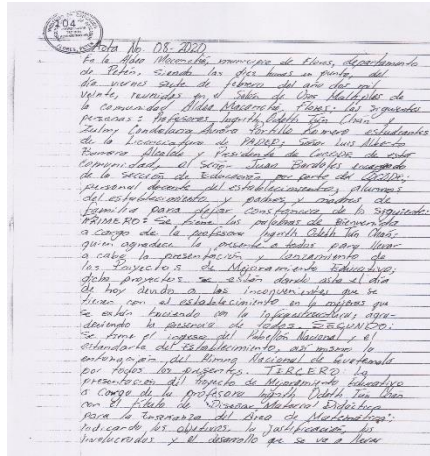 204
Acta No. 08-2020
En la Aldea Macanché, municipio de Flores, departamento
de Petén, siendo las diez horas en punto, del
día viernes siete de febrero del año dos mil
veinte, reunidos en el Salón de Usos Múltiples de
la comunidad Aldea Macanché, Flores; las siguientes
personas: Profesoras Ingrith Odeth Tún Chan y
Zulmy Candelaria Aurora Portillo Romero estudiantes
de la Licenciatura de PADEP; Señor Luis Alberto
Romero Alcalde y Presidente de COCODE de esta
comunidad, el Señor Juan Bardales encargado
de la Sección de Educación por parte del COCODE;
personal docente del establecimiento, alumnos
del establecimiento y padres y madres de
familia para dejar constancia de lo siguiente:
PRIMERO: Se tiene las palabras de bienvenida
a cargo de la profesora Ingrith Odeth Tún Chan,
quien agradece la presente a todos para llevar
a cabo la presentación y lanzamiento de
los Proyectos de Mejoramiento Educativo;
dicho proyectos se están dando hasta el día
de hoy devido a los inconvenientes que se
tienen con el establecimiento en mejoras que
se están haciendo con la infraestructura; agra-
deciendo la presencia de todos. SEGUNDO:
Se tiene el ingreso del Pabellón Nacional y el
estandarte del Establecimiento, así mismo la
entonación del Himno Nacional de Guatemala
por todos los presentes. TERCERO: La
presentación del Proyecto de Mejoramiento Educativo
a cargo de la profesora Ingrith Odeth Tún Chan
con el título de "Diseñar Material Didáctico
para la Enseñanza del Área de Matemática";
indicando los objetivos, la justificación, los
involucrados y el desarrollo que se va a llevar